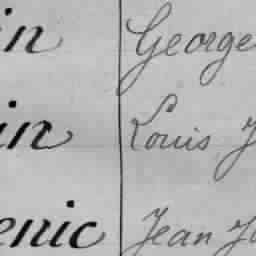 in George
in Louis J
enic Jean Jo